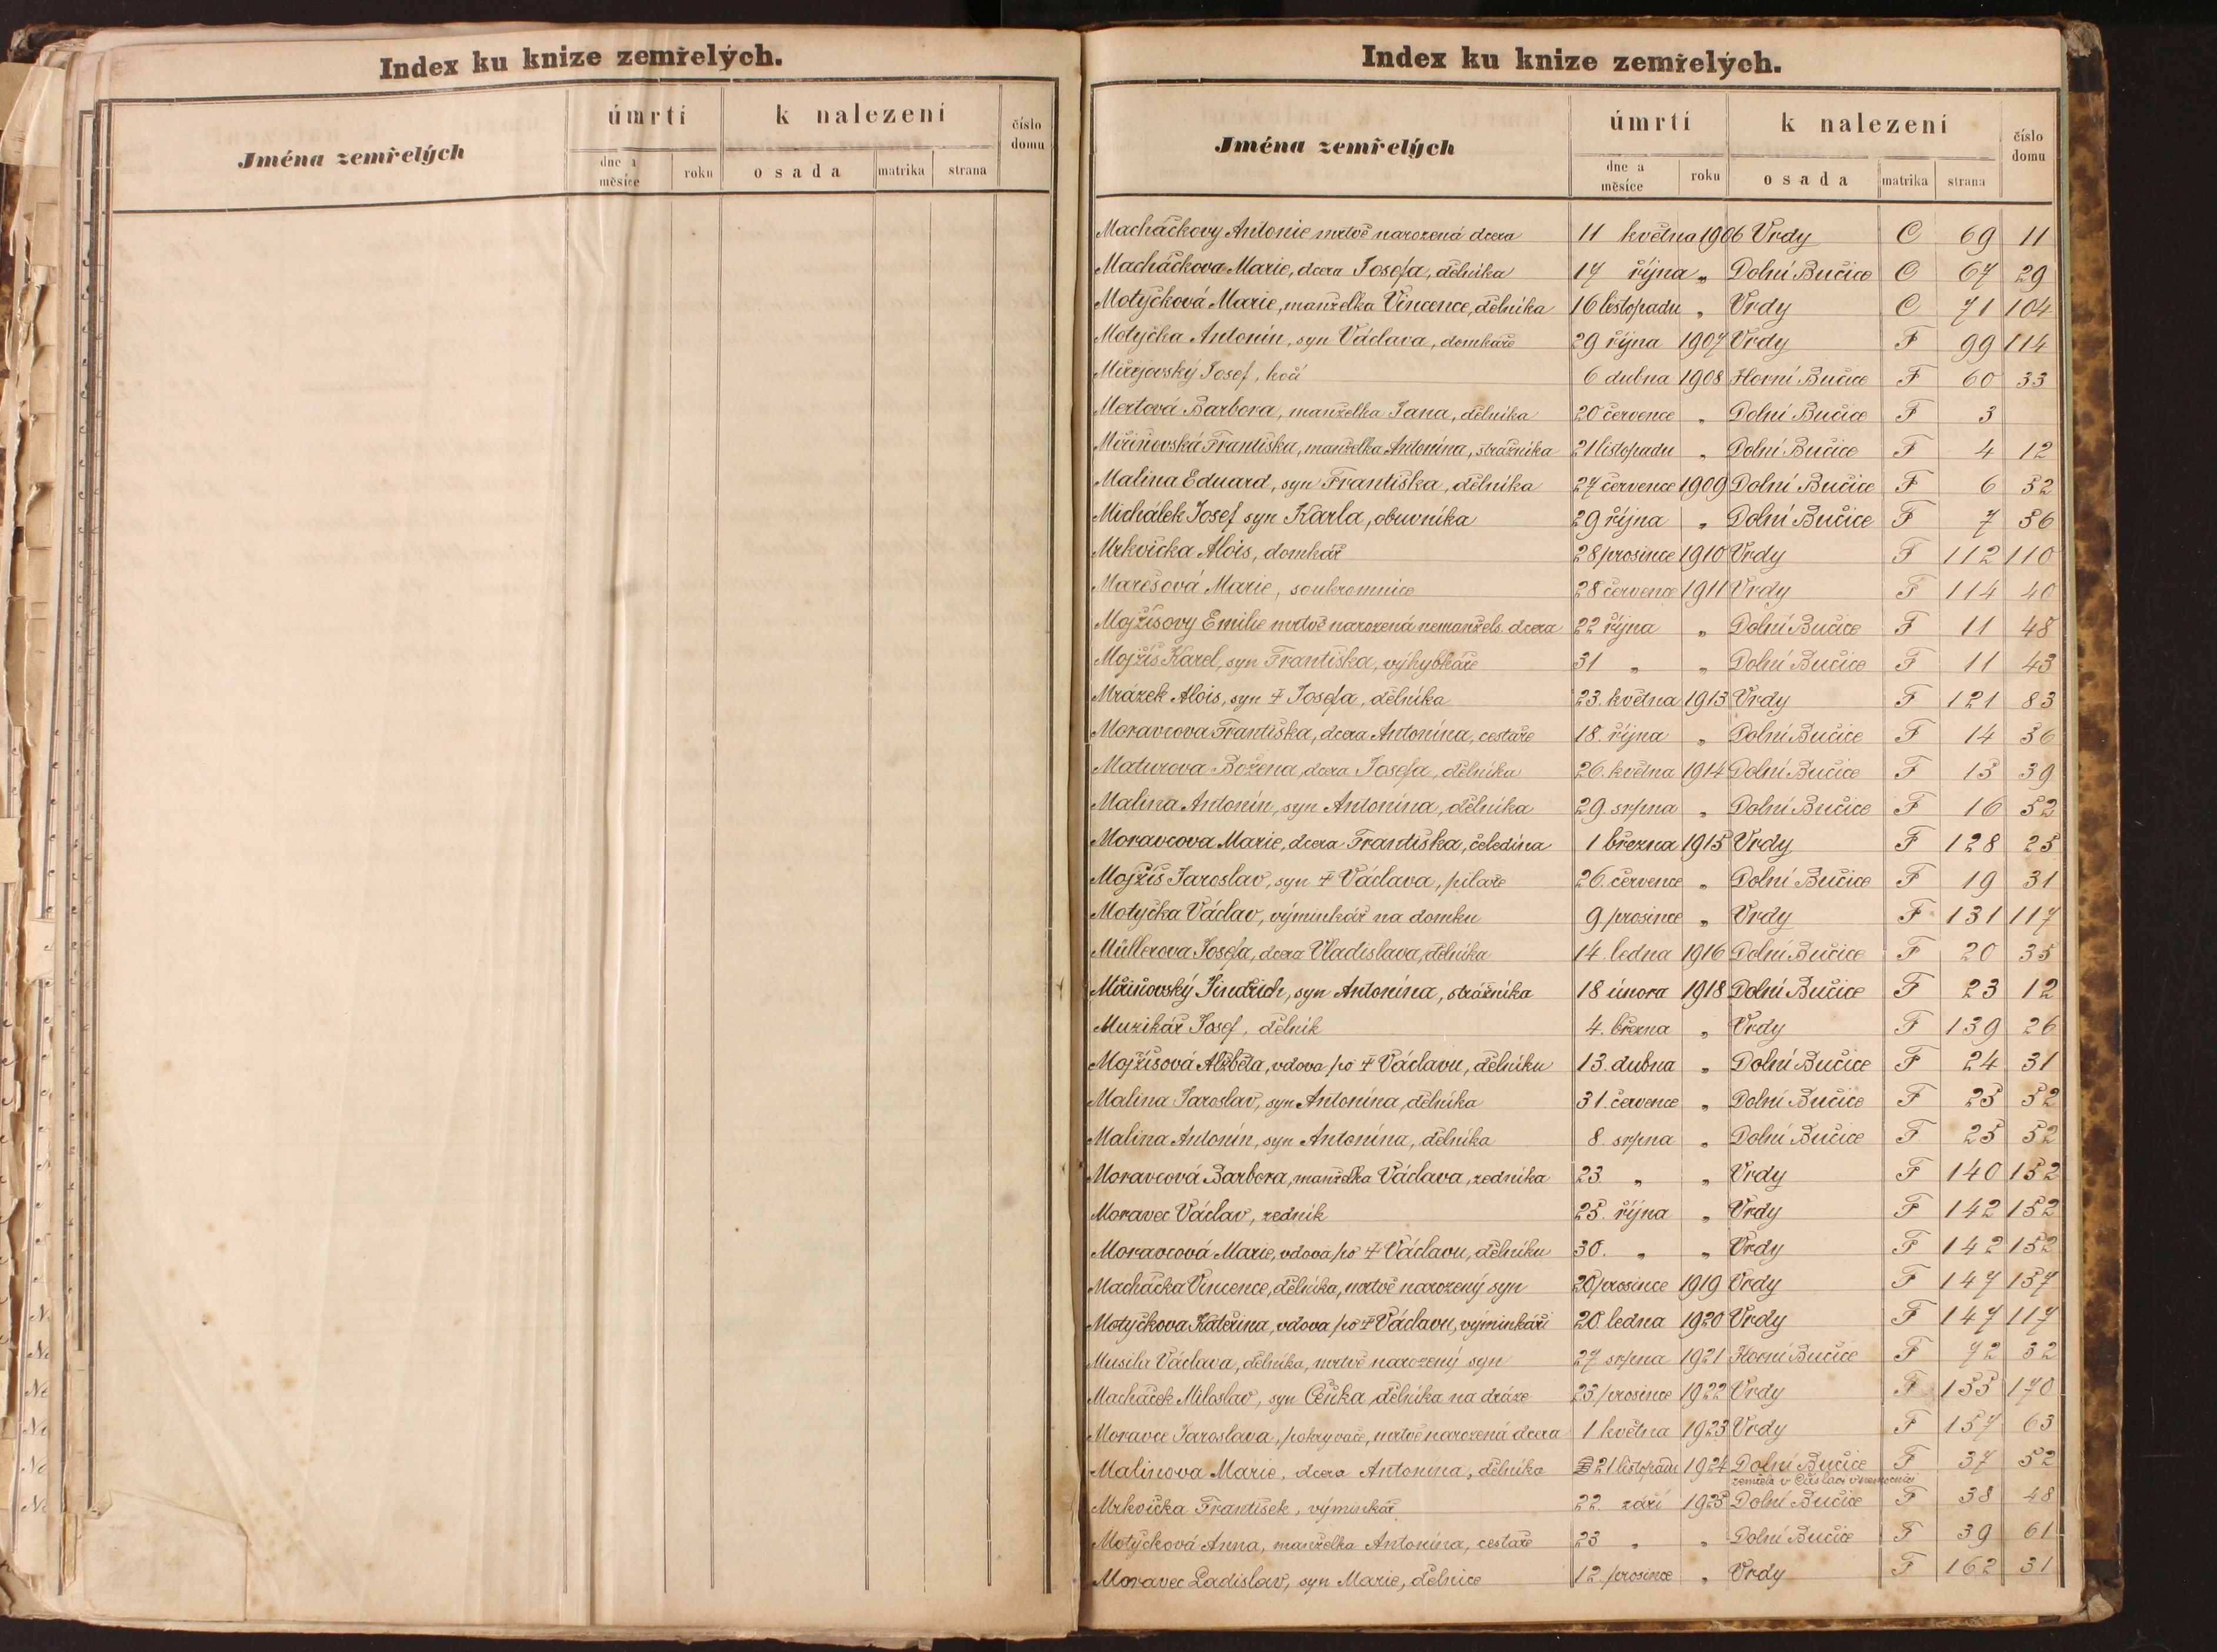 Index ku knize zemřelých.
Jména zemřelých
úmrtí
k nalezení
číslo domu
dne a měsíce
roku
osada
matrika
strana
Index ku knize zemřelých.
Jména zemřelých
úmrtí
k nalezení
číslo domu
dne a měsíce
roku
osada
matrika
strana
Macháčkovy Antonie mrtvě narozená dcera 11 května 1906 Vrdy C 69 11
Macháčkova Marie, dcera Josefa, dělníka 17 října „ Dolní Bučice C 67 29
Motyčková Marie, manželka Vincence, dělníka 16 listopadu „ Vrdy C 71 104
Motyčka Antonín, syn Václava, domkáře 29 října 1907 Vrdy F 99 114
Josef, kočí 6 dubna 1908 Horní Bučice F 60 33
Mertová Barbora, manželka Jana, dělníka 20 července „ Dolní Bučice F 3
Miřiňovská Františka, manželka Antonína, strážníka 21 listopadu „ Dolní Bučice F 4 12
Malina Eduard, syn Františka, dělníka 27 července 1909 Dolní Bučice F 6 52
Michálek Josef syn Karla, obuvníka 29 října „ Dolní Bučice F 7 36
Mrkvička Alois, domkář 28 prosince 1910 Vrdy F 112 110
Marešová Marie, soukromnice 28 července 1911 Vrdy F 114 40
Mojžíšovy Emilie mrtvě narozená nemanžels. dcera 22 října „ Dolní Bučice F 11 48
Mojžíš Karel, syn Františka, výhybkáře 31 „ „ Dolní Bučice F 11 43
Mrázek Alois, syn ‡ Josefa, dělníka 23. května 1913 Vrdy F 121 83
Moravcova Františka, dcera Antonína, cestáře 18. října „ Dolní Bučice F 14 36
Maturova Božena, dcera Josefa, dělníka 26. května 1914 Dolní Bučice F 15 39
Malina Antonín, syn Antonína, dělníka 29. srpna „ Dolní Bučice F 16 52
Moravcova Marie, dcera Františka, čeledína 1 března 1915 Vrdy F 128 25
Mojžíš Jaroslav, syn ‡ Václava, pilaře 26. července „ Dolní Bučice F 19 31
Motyčka Václav, výminkář na domku 9 prosince „ Vrdy F 131 117
Müllerova Josefa, dcera Vladislava, dělníka 14. ledna 1916 Dolní Bučice F 20 35
Miřiňovský Jindřich, syn Antonína, strážníka 18 února 1918 Dolní Bučice F 23 12
Muzikář Josef, dělník 4. března „ Vrdy F 139 26
Mojžíšová Alžběta, vdova po ‡ Václavu, dělníku 13. dubna „ Dolní Bučice F 24 31
Malina Jaroslav, syn Antonína, dělníka 31. července „ Dolní Bučice F 25 52
Malina Antonín, syn Antonína, dělníka 8. srpna „ Dolní Bučice F 25 52
Moravcová Barbora, manželka Václava, zedníka 23. „ „ Vrdy F 140 152
Moravec Václav, zedník 25. října „ Vrdy F 142 152
Moravcová Marie, vdova po ‡ Václavu, dělníku 30. „ „ Vrdy F 142 152
Macháčka Vincence, dělníka, mrtvě narozený syn prosince 1919 Vrdy F 147 157
Motyčkova Kateřina, vdova po ‡ Václavu, výminkáři 20. ledna 1920 Vrdy F 147 117
Musila Václava, dělníka, mrtvě narozený syn 27 srpna 1921 Horní Bučice F 72 32
Macháček Miloslav, syn Čeňka, dělníka na dráze 23. prosince 1922 Vrdy F 155 170
Moravce Jaroslava, pokryvače, mrtvě narozená dcera 1 května 1923 Vrdy F 157 63
Malinova Marie, dcera Antonína, dělníka 21 listopadu 1924 Dolní Bučice F 37 52
zemřela v Čáslavi v nemocnici
Mrkvička František, výminkář 22. září 1925 Dolní Bučice F 38 48
Motyčková Anna, manželka Antonína, cestáře 23 „ „ Dolní Bučice F 39 61
Moravec Ladislav, syn Marie, dělnice 12. prosince „ Vrdy F 162 31